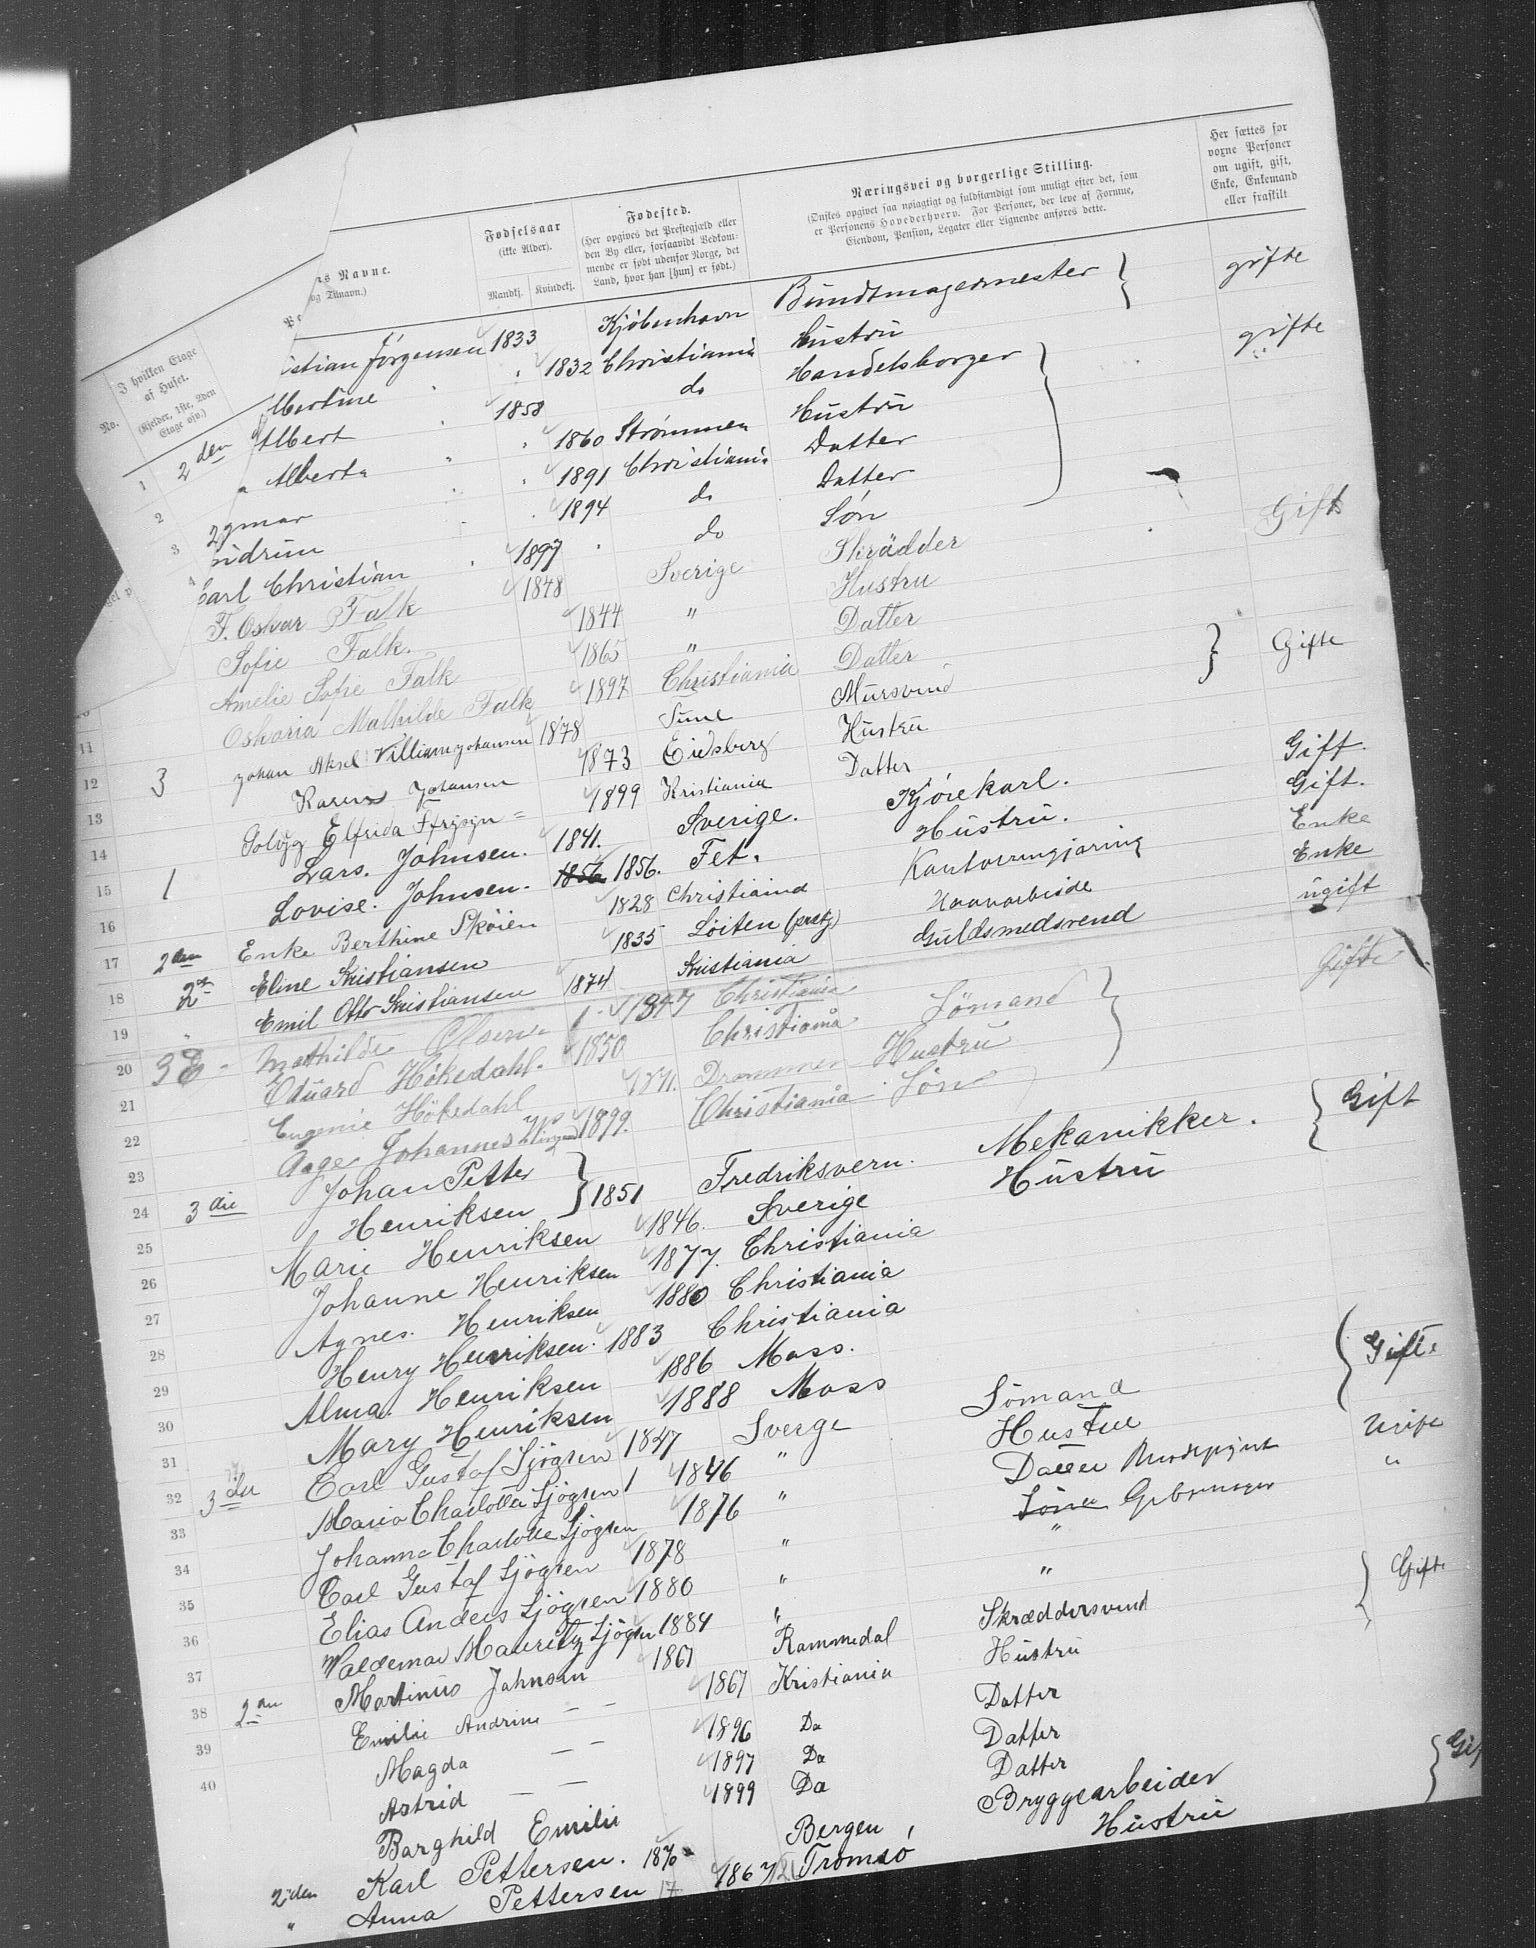 No.
I hvilken Etage af Huset. (Kjelder, 1ste, 2den Etage osv.)
rs Navne. og Tilnavn.)
Fødselsaar (ikke Alder).
Mandkj. Kvindekj.
Fødested. (Her opgives det Prestegjæld eller den By eller, forsaavidt Vedkommende er født udenfor Norge, det Land, hvor han [hun] er født.)
Næringsvei og borgerlige Stilling. (Ønskes opgivet saa nøiagtigt og fuldstændigt som muligt efter det, som er Personens Hovederhverv. For Personer, der leve af Formue, Eiendom, Pension, Legater eller Lignende anføres dette.
Her sættes for voxne Personer om ugift, gift, Enke, Enkemand eller fraskilt
1 2den istian Jörgensen 1833 Kjöbenhavn Bundtmagermester } gifte
2 Martine 1832 Christiania Hustru
3 Albert 1858 do Handelsborger } gifte
" Alberta 1860 Strømmen Hustru
gmar 1891 Christiania Datter
udrun 1894 do Datter
Carl Christian 1897 do Søn
F. Oskar Falk 1848 Sverige Skrädder Gift
Sofie Falk. 1844 " Hustru
Amelie Sofie Falk 1865 " Datter
Oskaria Mathilde Falk 1897 Christiania Datter
11 3 Johan Aksel Villiam Johansen 1878 Mursvend } Gifte
12 Karen Johansen 1873 Eidsberg Hustru
13 Solvyg Elfrida = 1899 Kristiania Datter
14 1 Lars. Johnsen. 1841. Sverige. Kjörekarl. Gift.
15 Lovise. Johnsen. 1856 1856. Fet. Hustru. Gift.
16 2den Enke Berthine Skøien 1828 Christiania Enke
17 2 Eline Kristiansen 1835 Løiten Enke
18 " Emil Otto Kristiansen 1874 Kristiania Guldsmedsvend ugift
19 3 E Mathilde Olsen 1847 Christiania
20 Eduard Hökedahl. 1850 Christiania Sömand } Gifte
21 Eugenie Hökedahl 1871. Drammen Hustru
22 Aage Johannes 1899. Christiania Søn
23 3die Johan Petter Henriksen } 1851 Fredriksvern. Mekanikker. } Gift
24 Marie Henriksen 1846. Sverige Hustru
25 Johanne Henriksen 1877. Christiania
26 Agnes. Henriksen 1880 Christiania
27 Henry Henriksen. 1883 Christiania
28 Alma. Henriksen 1886 Moss.
29 Mary Henriksen 1888 Moss
30 3die Carl Gustaf Sjögren 1847 Sverge Sömand { Gift.
31 Maria Charlotta Sjögren 1846 " Hustru
32 Johanna Charlotte Sjögren 1876 " Datter Ugift
33 Carl Gustaf Sjögren 1878 " "
34 Elias Anders Sjögren 1880 " "
35 Waldemar Mauritz Sjögren 1884 " "
36 2den Martinus Johnsen 1861 Rommedal Skræddersvend } Gifte
37 Emilie Andrine — — 1867 Kristiania Hustru
38 Magda — — 1896 Do Datter
39 Astrid — — 1897 Do Datter
40 Borghild Emilie 1899 Do Datter
2den Karl Pettersen. 1870 Bergen Bryggearbeider } Gif
" Anna Pettersen 1867 Tromsö Hustru